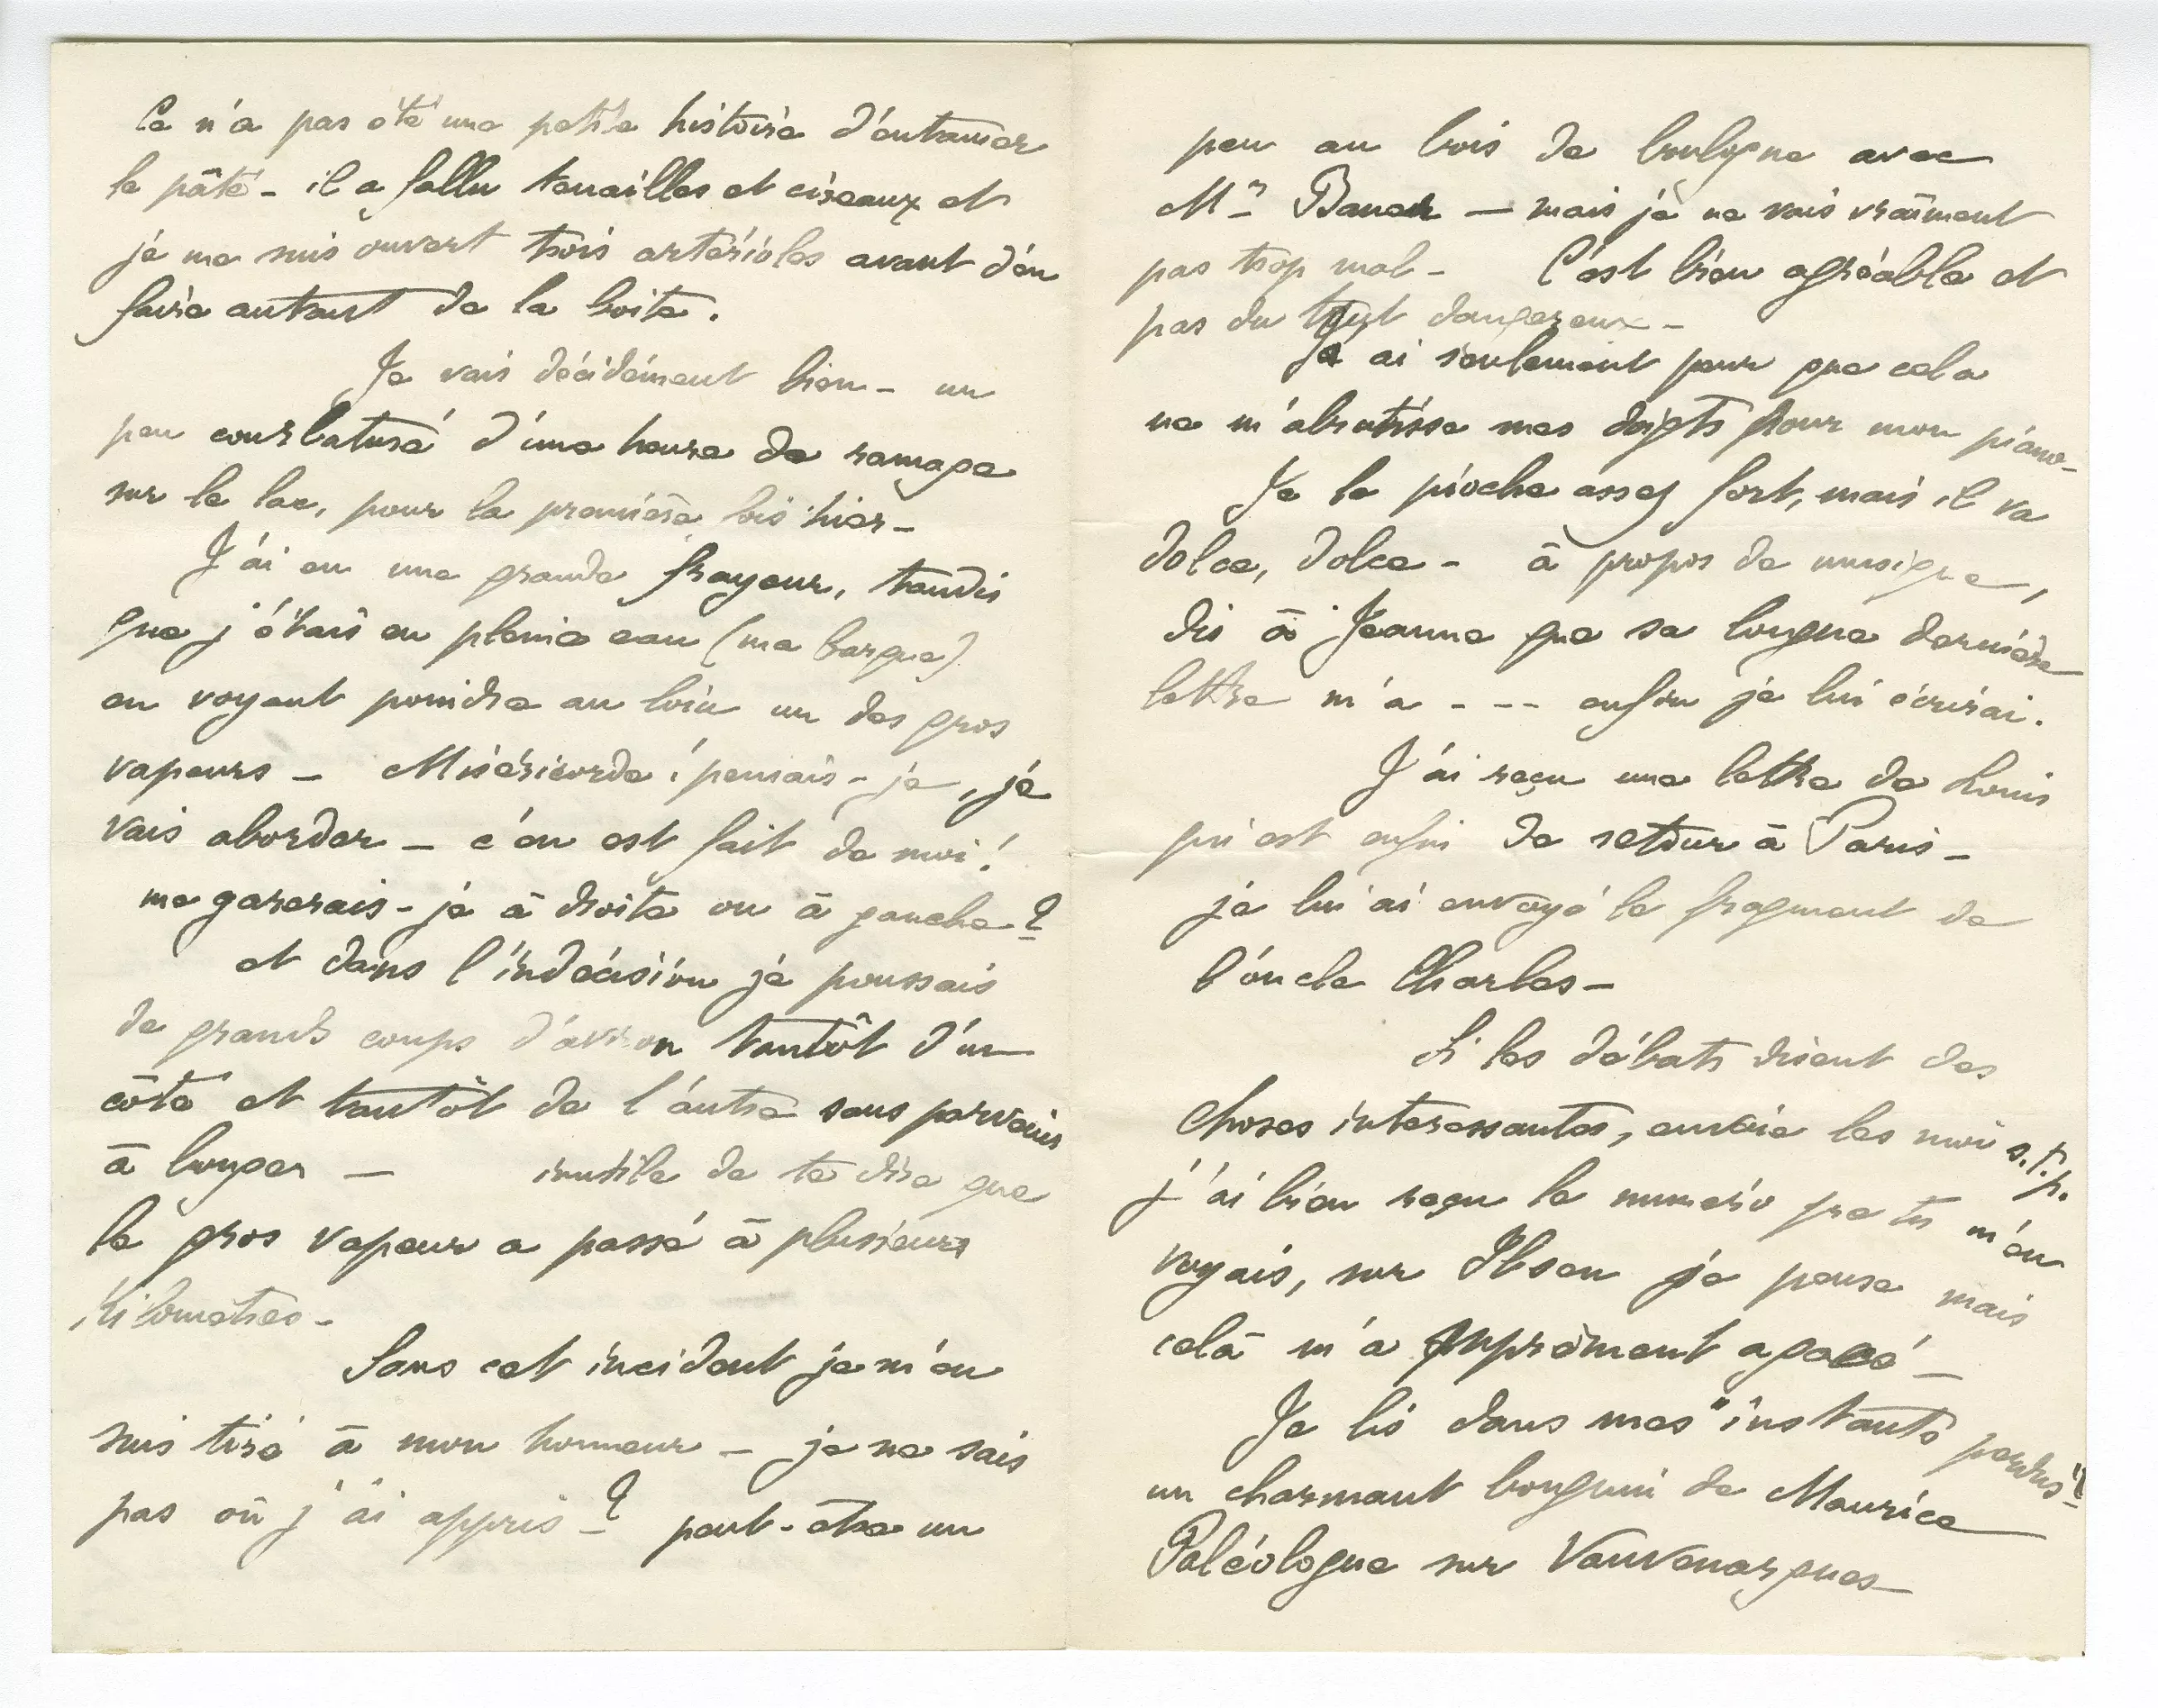 Ce n'a pas été une petite histoire d'entamer
le pâté - il a fallu tenailles et ciseaux et
je me suis ouvert trois artérioles avant d'en
faire autant de la boite.
Je vais décidément bien - un
peu courbaturé d'une heure de ramage
sur le lac, pour la première fois hier -
J'ai eu une grande frayeur, tandis
que j'étais en pleine eau (ma barque)
en voyant poindre au loin un des gros
vapeurs - Miséricorde ! pensais-je, je
vais aborder - c'en est fait de moi !
me garerais-je à droite ou à gauche ?
et dans l'indécision je poussais
de grands coups d'aviron tantôt d'un
côté et tantôt de l'autre sans parvenir
à bouger - inutile de te dire que
le gros vapeur a passé à plusieurs
kilomètres -
Sans cet incident je m'en
suis tiré à mon honneur - je ne sais
pas où j'ai appris - ? peut-être un
peu au bois de boulogne avec
Mr - mais je ne vais vraiment
pas trop mal - C'est bien agréable et
pas du tout dangereux -
J'ai seulement peur que cela
ne m'abrutisse mes doigts pour mon piano -
Je le pioche assez fort, mais il va
dolce, dolce - à propos de musique,
dis à Jeanne que sa longue dernière
lettre m'a - - - enfin je lui écrirai.
J'ai reçu une lettre de Louis
qui est enfin de retour à Paris -
je lui ai envoyé le fragment de
l'oncle Charles -
Si les débats disent des
choses interessantes, envoie les moi s.t.p.
j'ai bien reçu le numero que tu m'en
voyais, sur Ibsen je pense mais
celà m'a proprement agacé -
Je lis dans mes "instants perdus" !
un charmant bouquin de Maurice
Paléologue sur Vauvenargues -